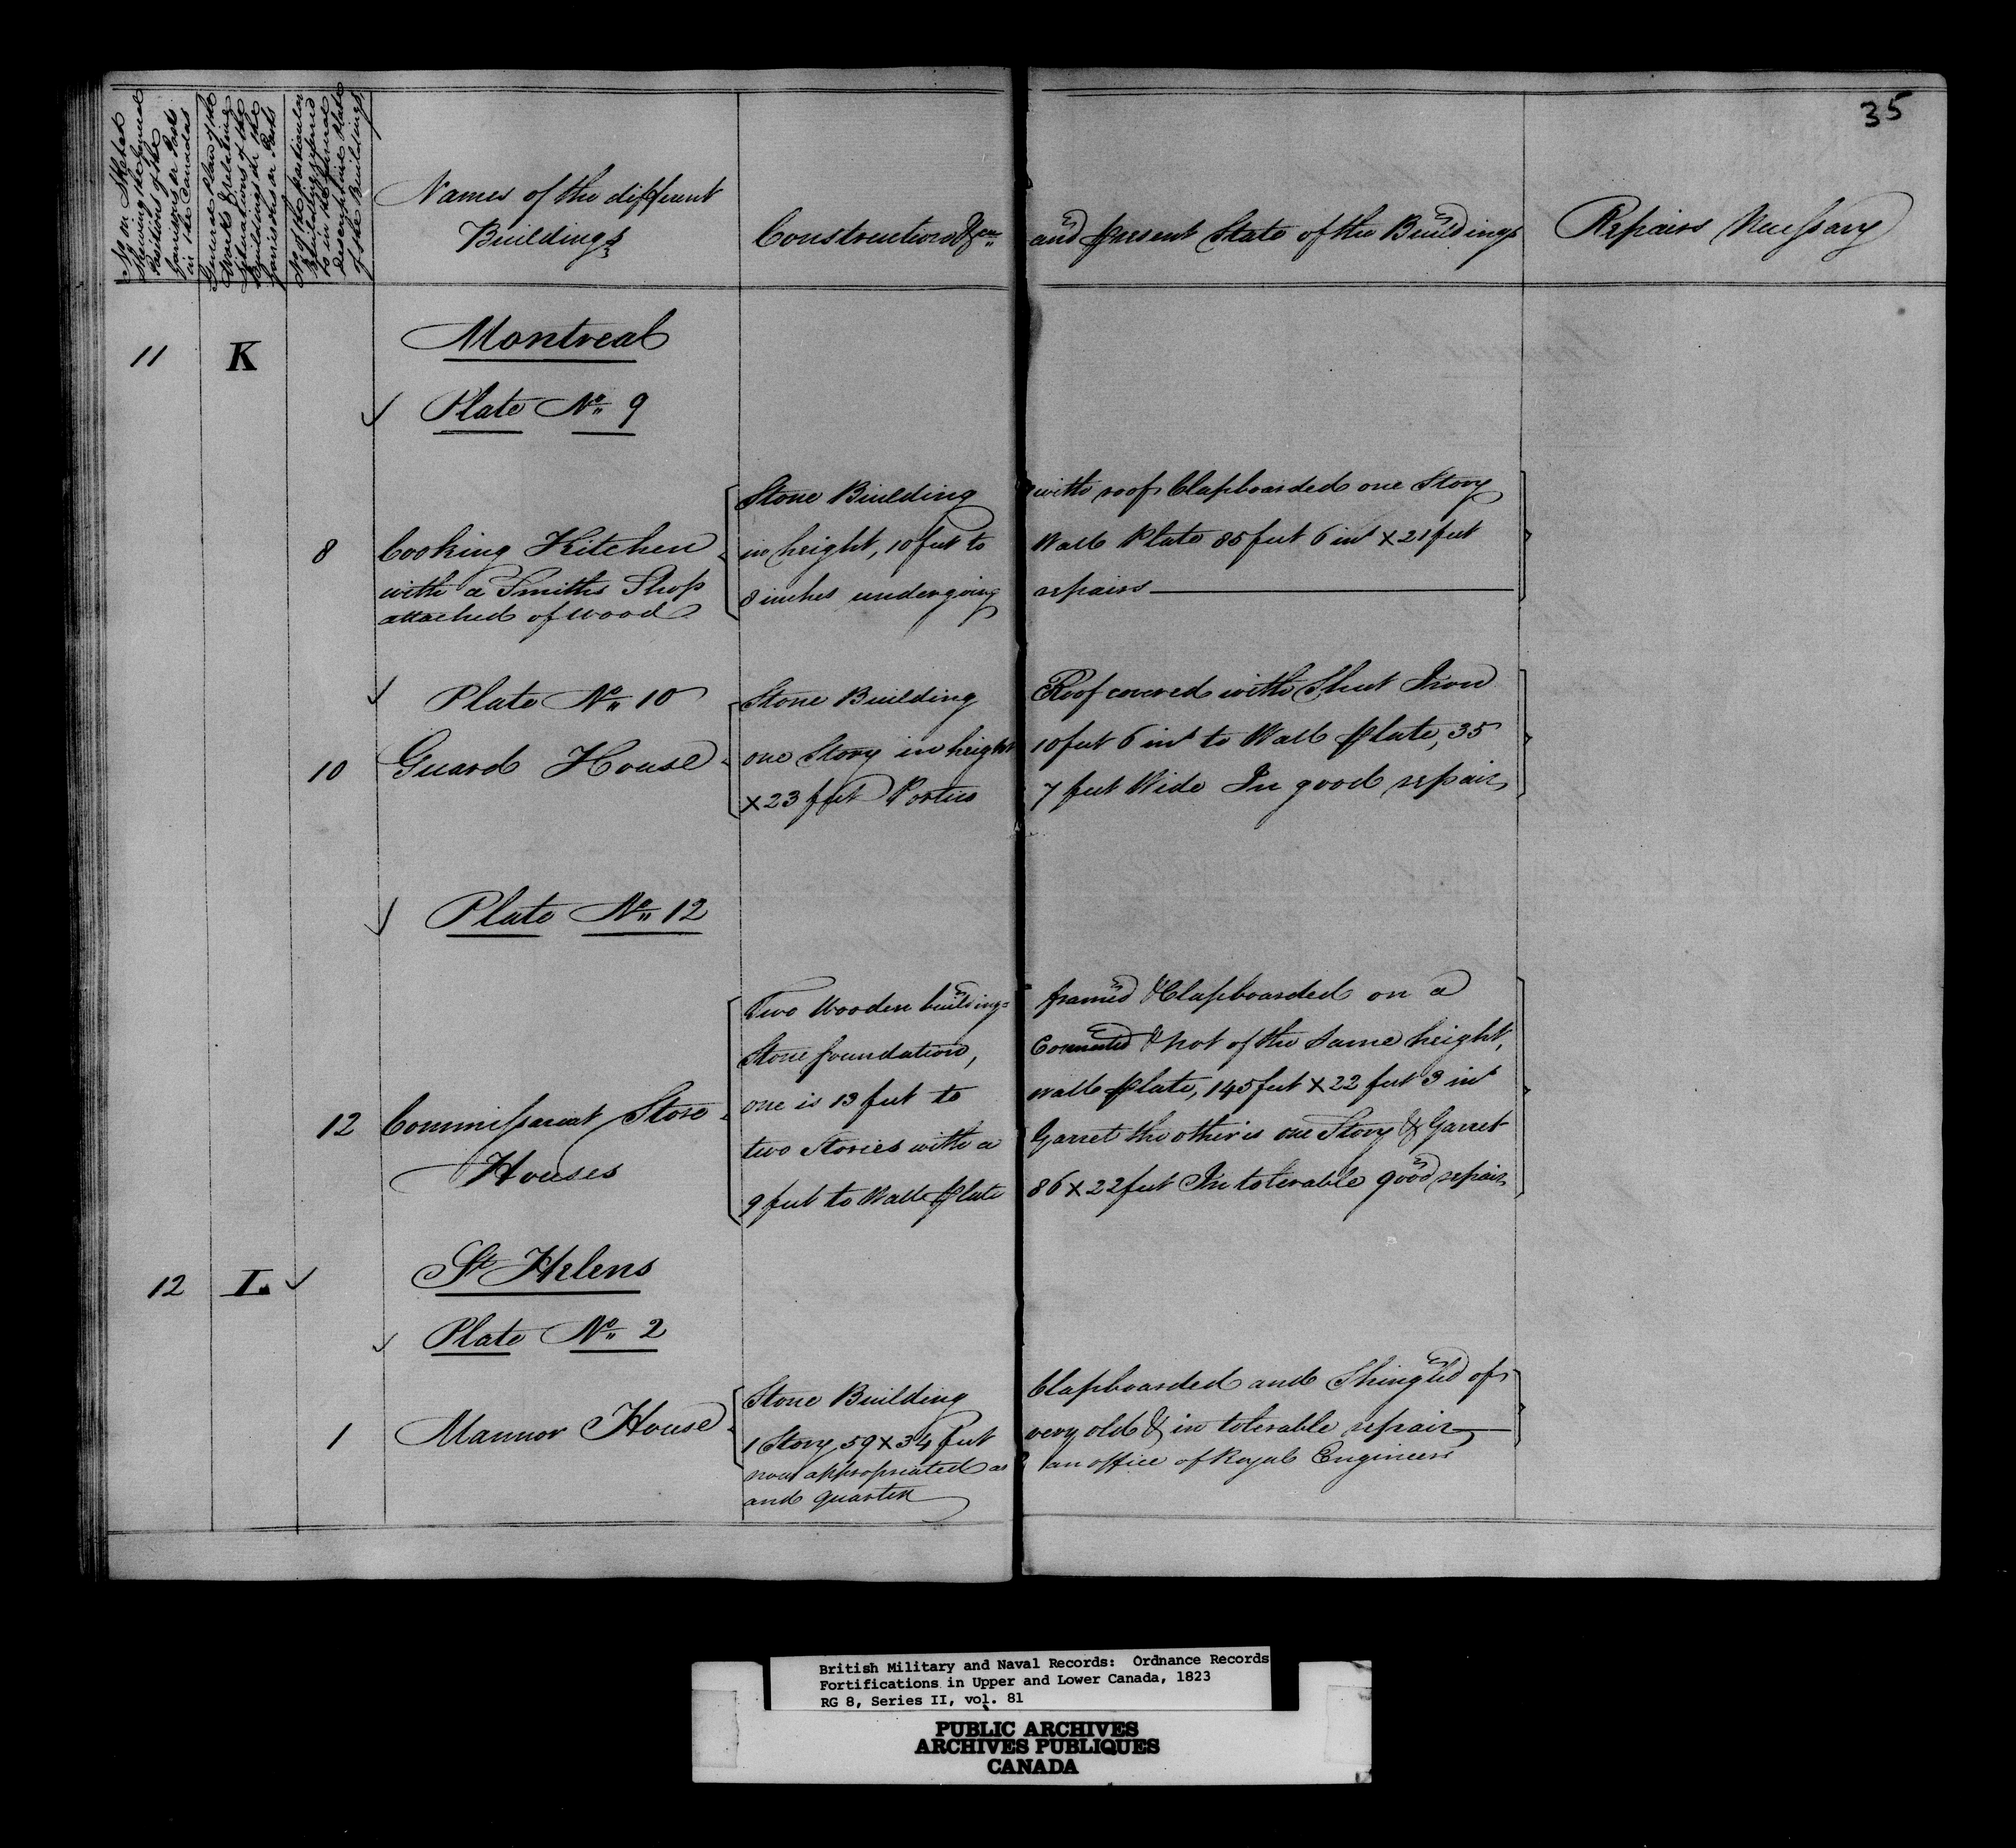 35
No in Sketch
Showing the General
Positions of the
Garrisons or Posts
in the Canadas
General Plan of the
Works & relating
Situations of the
Buildings at the
Garrisons or Posts
No of the particular
Building referred
to in the General
descriptive Plate
of the Buildings
Names of the different
Buildings
Construction &ca and present State of the Buildings
Repairs Necessary
11 K Montreal
Plate No 9
Stone Building with roof Clapboarded one Story
8 Cooking Kitchen in height, 10 feet to Wall Plate 85 feet 6 ins x 21 feet
with a Smiths Shop 8 inches undergoing repairs
attached of wood
Plate No 10 Stone Building Roof covered with Sheet Iron
10 Guard House one Story in height 10 feet 6 ins to Wall plate, 35
x 23 feet Portico 7 feet Wide In good repair
Plate No 12
Two Wooden buildings framed & Clapboarded on a
Stone foundation, Connected & not of the same height,
one is 13 feet to wall plate, 145 feet x 22 feet 3 ins
12 Commissariat Store two Stories with a Garret the other is one Story & Garret
Houses 9 feet to Wall plate 86 x 22 feet In tolerable good repair
12 L St Helens
Plate No 2
Stone Building Clapboarded and Shingled of
1 Mannor House 1 Story 59 x 34 feet very old & in tolerable repair
now appropriated as an office of Royal Engineers
and quarter
British Military and Naval Records: Ordnance Records
Fortifications in Upper and Lower Canada, 1823
RG 8, Series II, vol. 81
PUBLIC ARCHIVES
ARCHIVES PUBLIQUES
CANADA